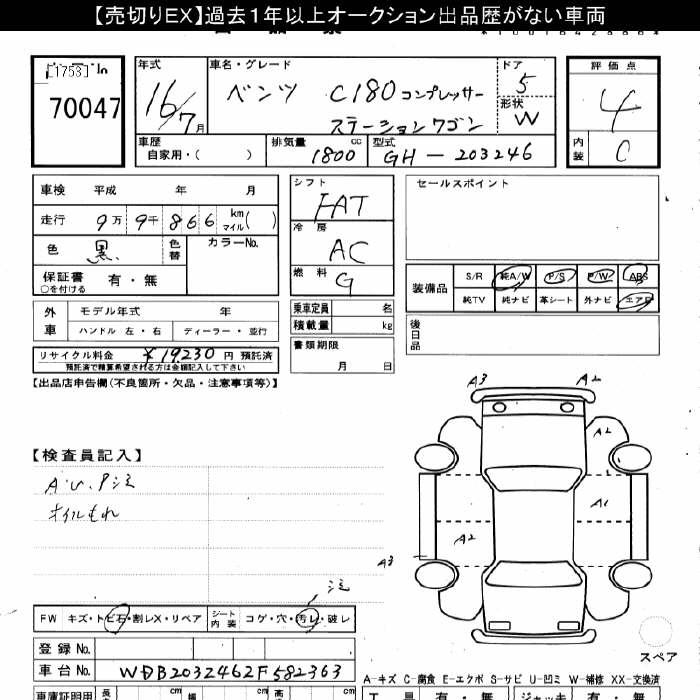 【売切りEX】過去1年以上オークション出品歴がない車両
[1753] No
70047
年式
16/7 月
車名・グレード
ベンツ C180 コンプレッサー
ステーションワゴン
ドア
5
形状
W
評価点
4
内装
C
車歴
自家用・( )
排気量
1800 cc
型式
GH-203246
車検 平成 年 月
走行 9万 9千 866 km マイル( )
色 黒
色替
カラーNo.
保証書
○を付ける
有・無
シフト
FAT
冷房
AC
燃料
G
セールスポイント
装備品
S/R 純A/W P/S P/W ABS
純TV 純ナビ 革シート 外ナビ エアB
外車
モデル年式 年
ハンドル 左・右 ディーラー・並行
乗車定員 名
積載量 kg
後日品
リサイクル料金 ¥19,230 円 預託済
預託済で精算希望される方は金額記入して下さい
書類期限
月 日
【出品店申告欄(不良箇所・欠品・注意事項等)】
A3 A2
A2
【検査員記入】
A・U、P注
オイルもれ
A1
A2
A3
注
FW キズ・トビ石・割レX・リペア
シート内装 コゲ・穴・汚レ・破レ
登録No.
車台No. WDB2032462F582363
スペア
A-キズ C-腐食 E-エクボ S-サビ U-凹ミ W-補修 XX-交換済
車庫証明用 長 cm 幅 cm 高 cm
工具 有・無 ジャッキ 有・無